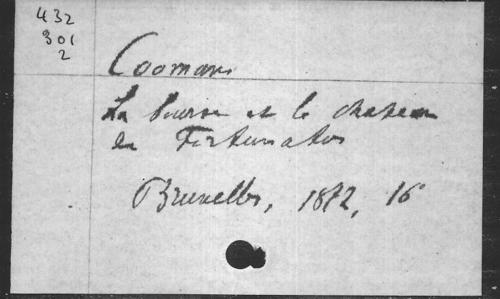 432
301
2
Coomans
La bourse et le chapeau
de Fortunatus
Bruxelles, 1872, 16°